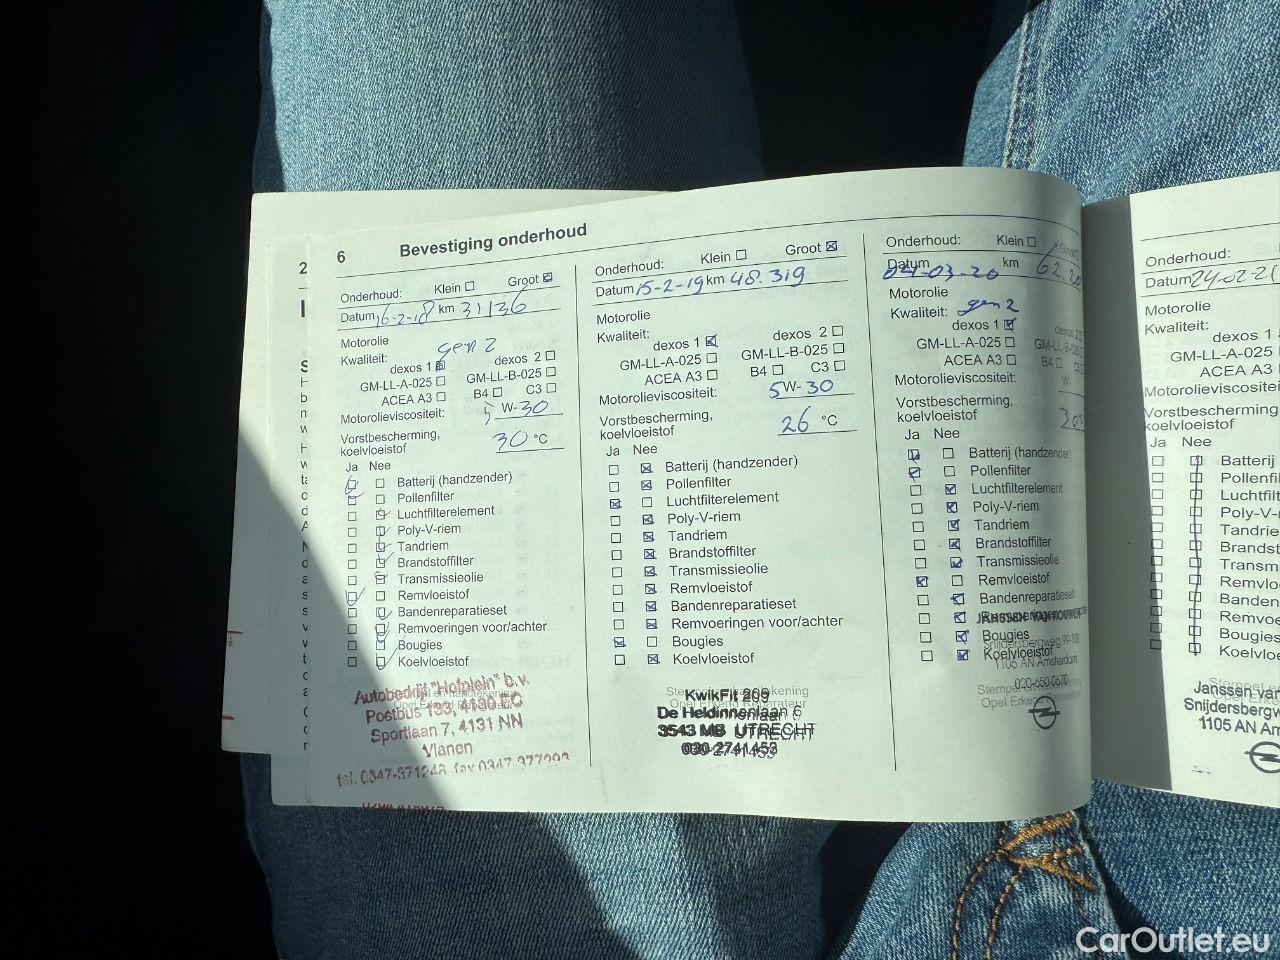 6 Bevestiging onderhoud
Onderhoud: Klein Groot
Datum 16-2-18 km 31136
Motorolie
Kwaliteit: gen 2
dexos 1 dexos 2
GM-LL-A-025 GM-LL-B-025
ACEA A3 B4 C3
Motorolieviscositeit: 5 W-30
Vorstbescherming,
koelvloeistof 30 °C
Ja Nee
Batterij (handzender)
Pollenfilter
Luchtfilterelement
Poly-V-riem
Tandriem
Brandstoffilter
Transmissieolie
Remvloeistof
Bandenreparatieset
Remvoeringen voor/achter
Bougies
Koelvloeistof
Autobedrijf "Hofplein" b.v.
Postbus 133, 4130 EC
Sportlaan 7, 4131 NN
Vianen
tel. 0347-371248 fax 0347-377298
Onderhoud: Klein Groot
Datum 15-2-19 km 48.319
Motorolie
Kwaliteit:
dexos 1 dexos 2
GM-LL-A-025 GM-LL-B-025
ACEA A3 B4 C3
Motorolieviscositeit: 5W-30
Vorstbescherming,
koelvloeistof 26 °C
Ja Nee
Batterij (handzender)
Pollenfilter
Luchtfilterelement
Poly-V-riem
Tandriem
Brandstoffilter
Transmissieolie
Remvloeistof
Bandenreparatieset
Remvoeringen voor/achter
Bougies
Koelvloeistof
KwikFit 209
De Heldinnenlaan 6
3543 MB UTRECHT
030-2741453
Onderhoud: Klein Groot
Datum 04-03-20 km 62.20
Motorolie
Kwaliteit: gen 2
dexos 1 dexos 2
GM-LL-A-025 GM-LL-B-025
ACEA A3 B4 C3
Motorolieviscositeit: W-
Vorstbescherming,
koelvloeistof 30
Ja Nee
Batterij (handzender)
Pollenfilter
Luchtfilterelement
Poly-V-riem
Tandriem
Brandstoffilter
Transmissieolie
Remvloeistof
Bandenreparatieset
Bougies
Koelvloeistof
JANSSEN VAN KOUWEN
Snijdersbergweg 99-103
1105 AN Amsterdam
020-650 0670
Onderhoud:
Datum 24-02-2
Motorolie
Kwaliteit:
dexos 1
GM-LL-A-025
ACEA A3
Motorolieviscositeit
Vorstbescherming
koelvloeistof
Ja Nee
Batterij
Pollenfil
Luchtfilt
Poly-V-r
Tandrie
Brandst
Transm
Remvlo
Banden
Remvo
Bougies
Koelvlo
Janssen van
Snijdersbergw
1105 AN Am
CarOutlet.eu